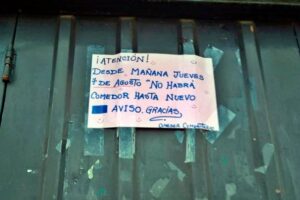 ¡ATENCIÓN!
DESDE MAÑANA JUEVES
7 DE AGOSTO "NO HABRÁ
COMEDOR HASTA NUEVO
AVISO. GRACIAS.